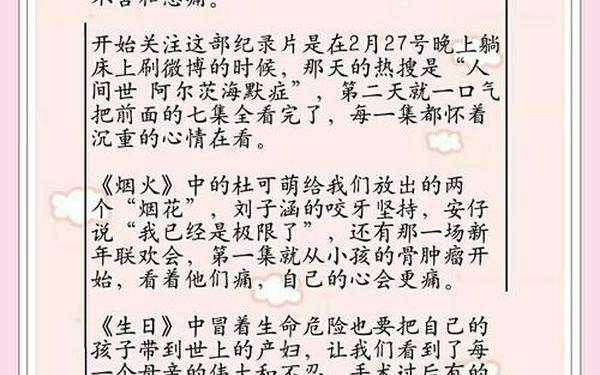 开始关注这部纪录片是在2月27号晚上躺
床上刷微博的时候，那天的热搜是“人
间世 阿尔茨海默症”，第二天就一口气
把前面的七集全看完了，每一集都怀着
沉重的心情在看。
《烟火》中的杜可萌给我们放出的两
个“烟花”，刘子涵的咬牙坚持，安仔
说“我已经是极限了”，还有那一场新
年联欢会，第一集就从小孩的骨肿瘤开
始，看着他们痛，自己的心会更痛。
《生日》中冒着生命危险也要把自己的
孩子带到世上的产妇，让我们看到了每
一个母亲的伟大和不忍，手术过后有的